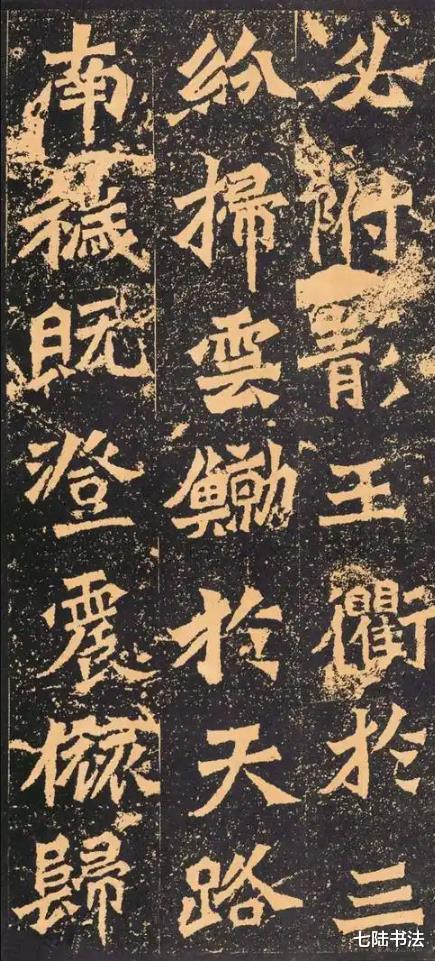 必附王衢於三
紛掃雲鯨於天路
南穢既澄震旅歸
七陆书法